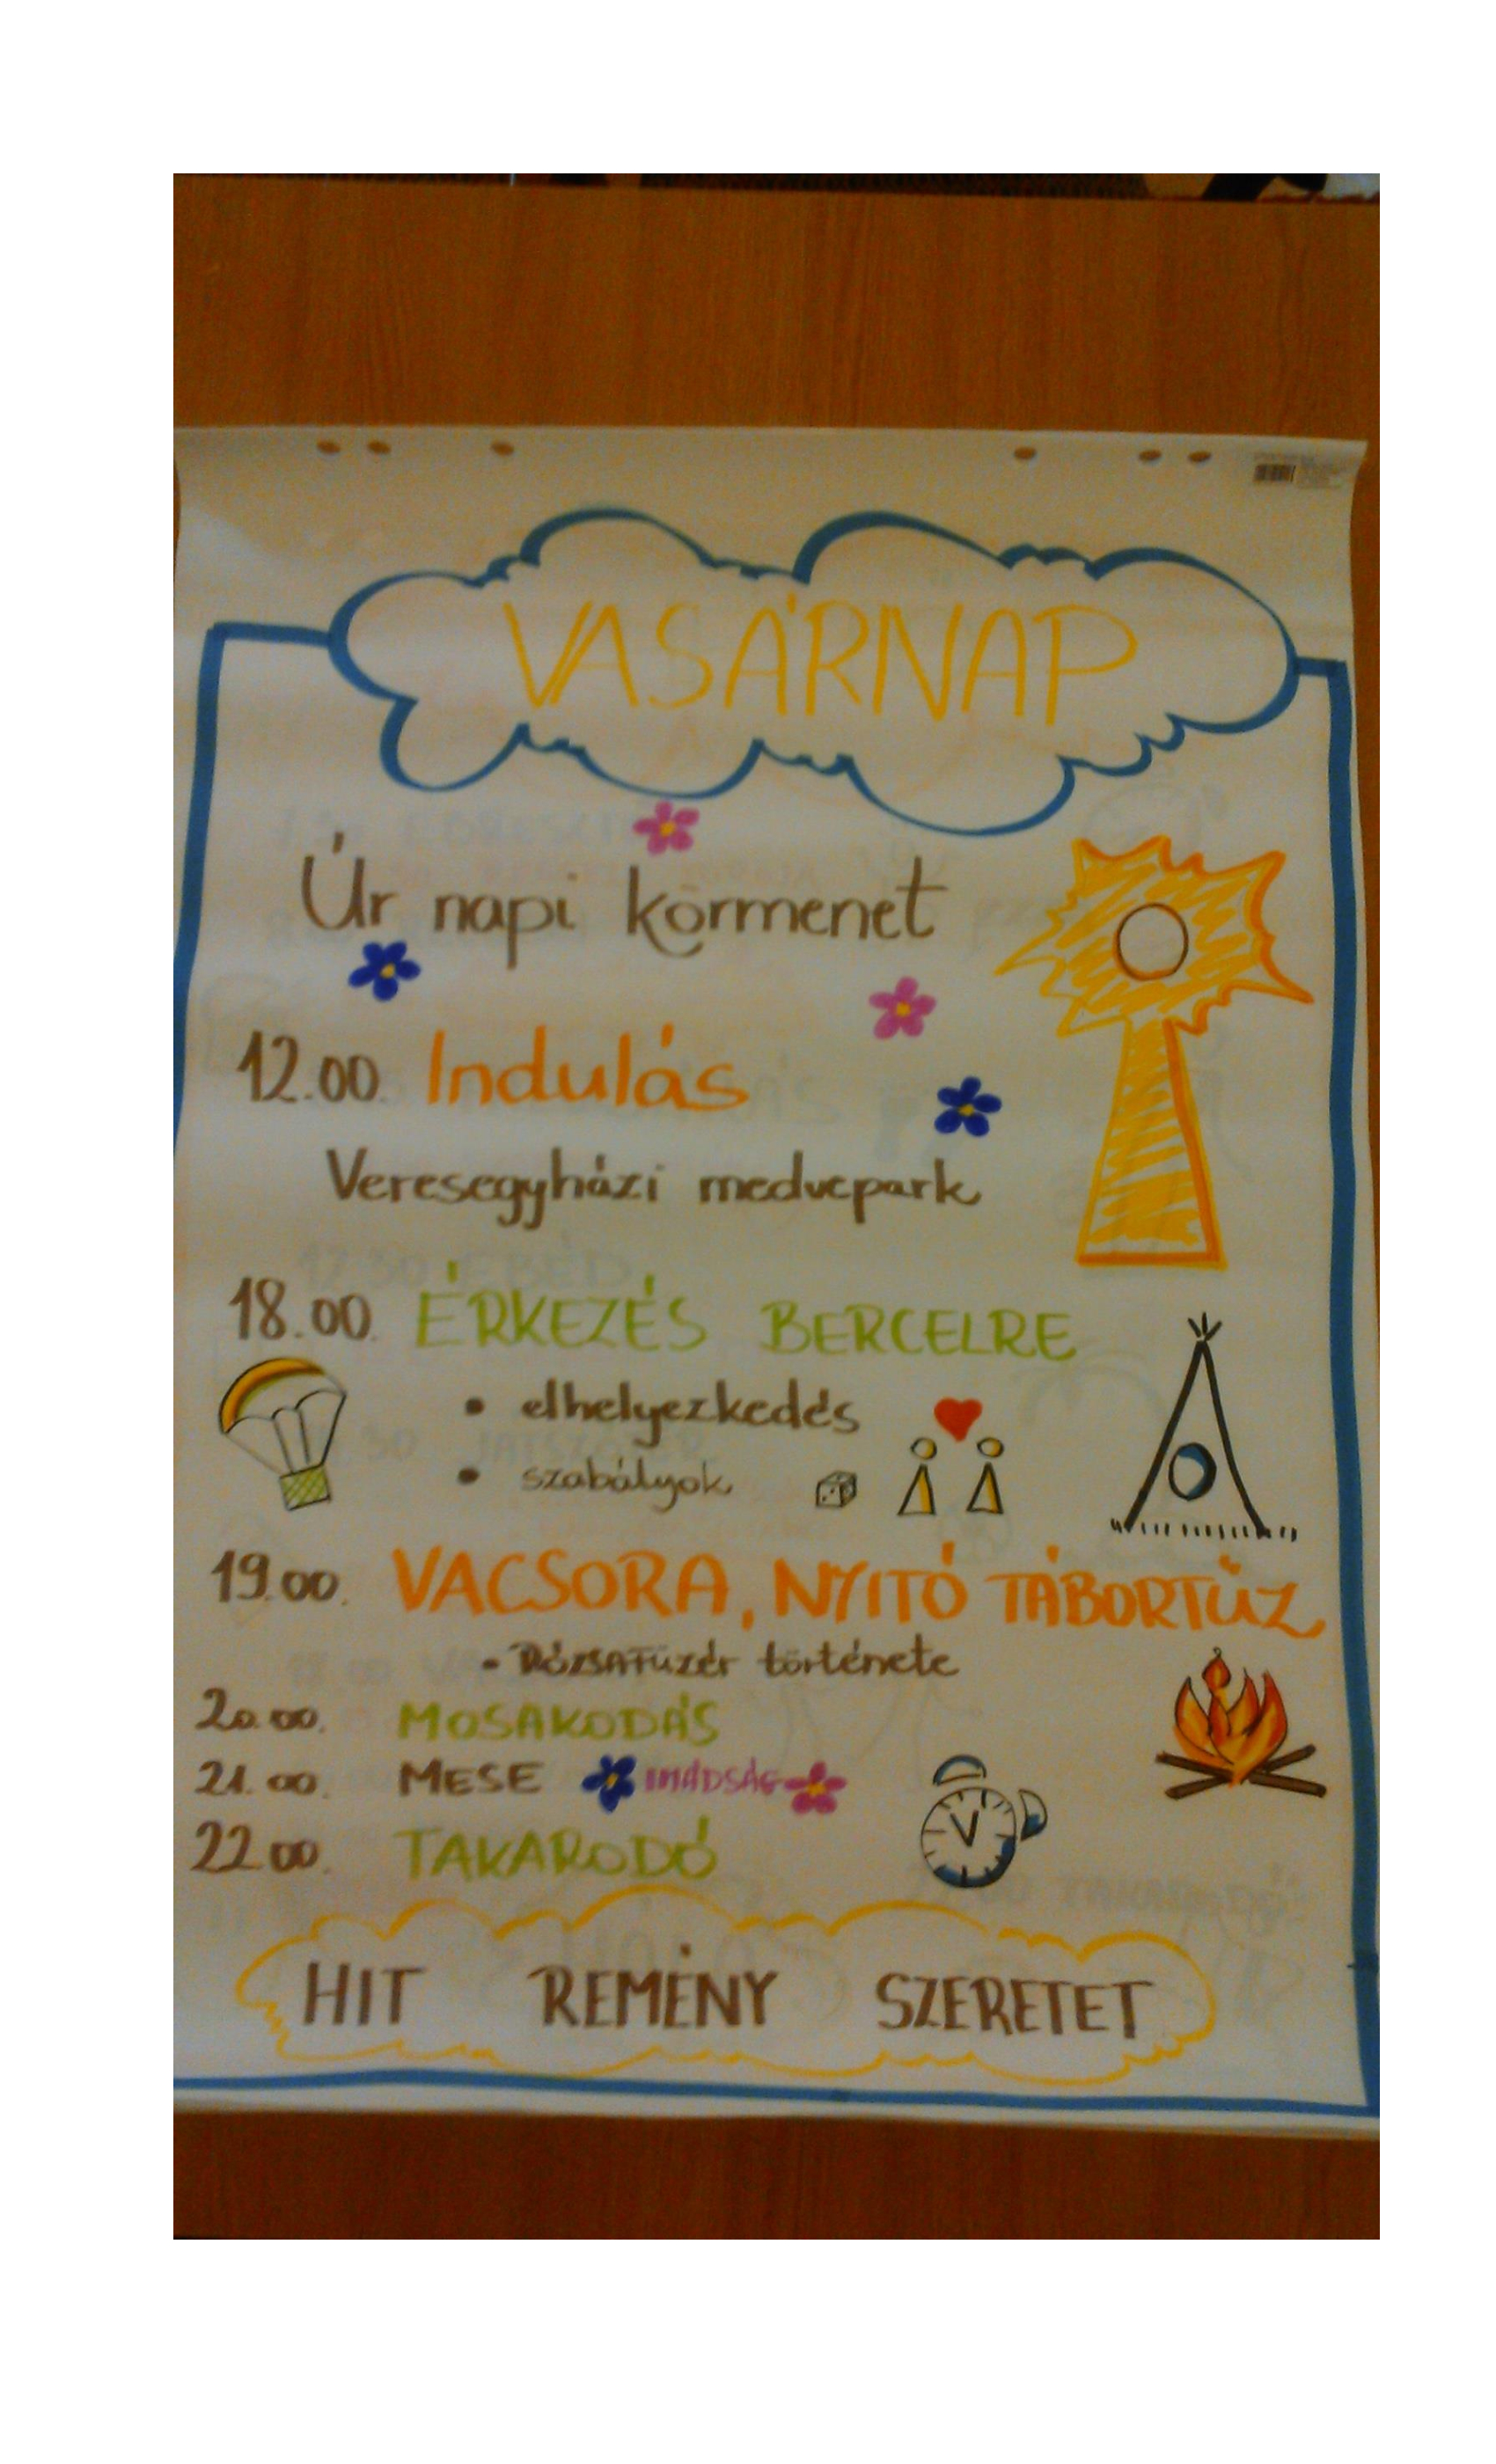 VASÁRNAP
Úr napi körmenet
12.00. Indulás
Veresegyházi medvepark
18.00. ÉRKEZÉS BERCELRE
• elhelyezkedés
• szabályok
19.00. VACSORA, NYITÓ TÁBORTŰZ
- RÓZSAFÜZÉR története
20.00. MOSAKODÁS
21.00. MESE IMÁDSÁG
22.00. TAKARODÓ
HIT REMÉNY SZERETET